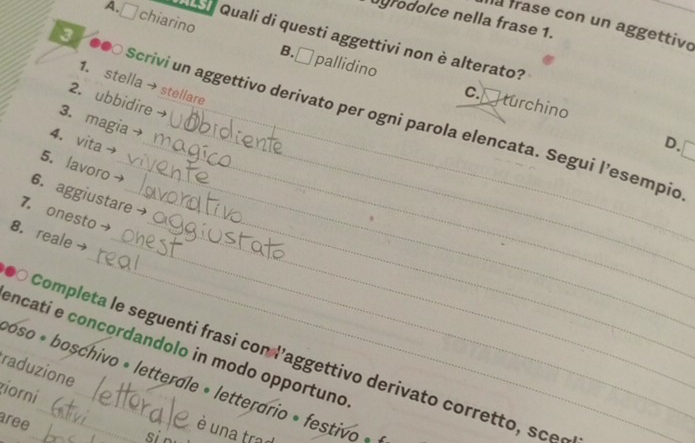 agrodolce nella frase 1.
una frase con un aggettivo
Quali di questi aggettivi non è alterato?
A. chiarino
B. pallidino
C. turchino
D.
3 Scrivi un aggettivo derivato per ogni parola elencata. Segui l'esempio.
1. stella → stellare
2. ubbidire → ubbidiente
3. magia → magico
4. vita → vivente
5. lavoro → lavorativo
6. aggiustare → aggiustato
7. onesto → onest
8. reale → real
Completa le seguenti frasi con l'aggettivo derivato corretto,
lencati e concordandolo in modo opportuno.
boschivo • letterale • letterario • festivo •
traduzione letterale è una
giorni